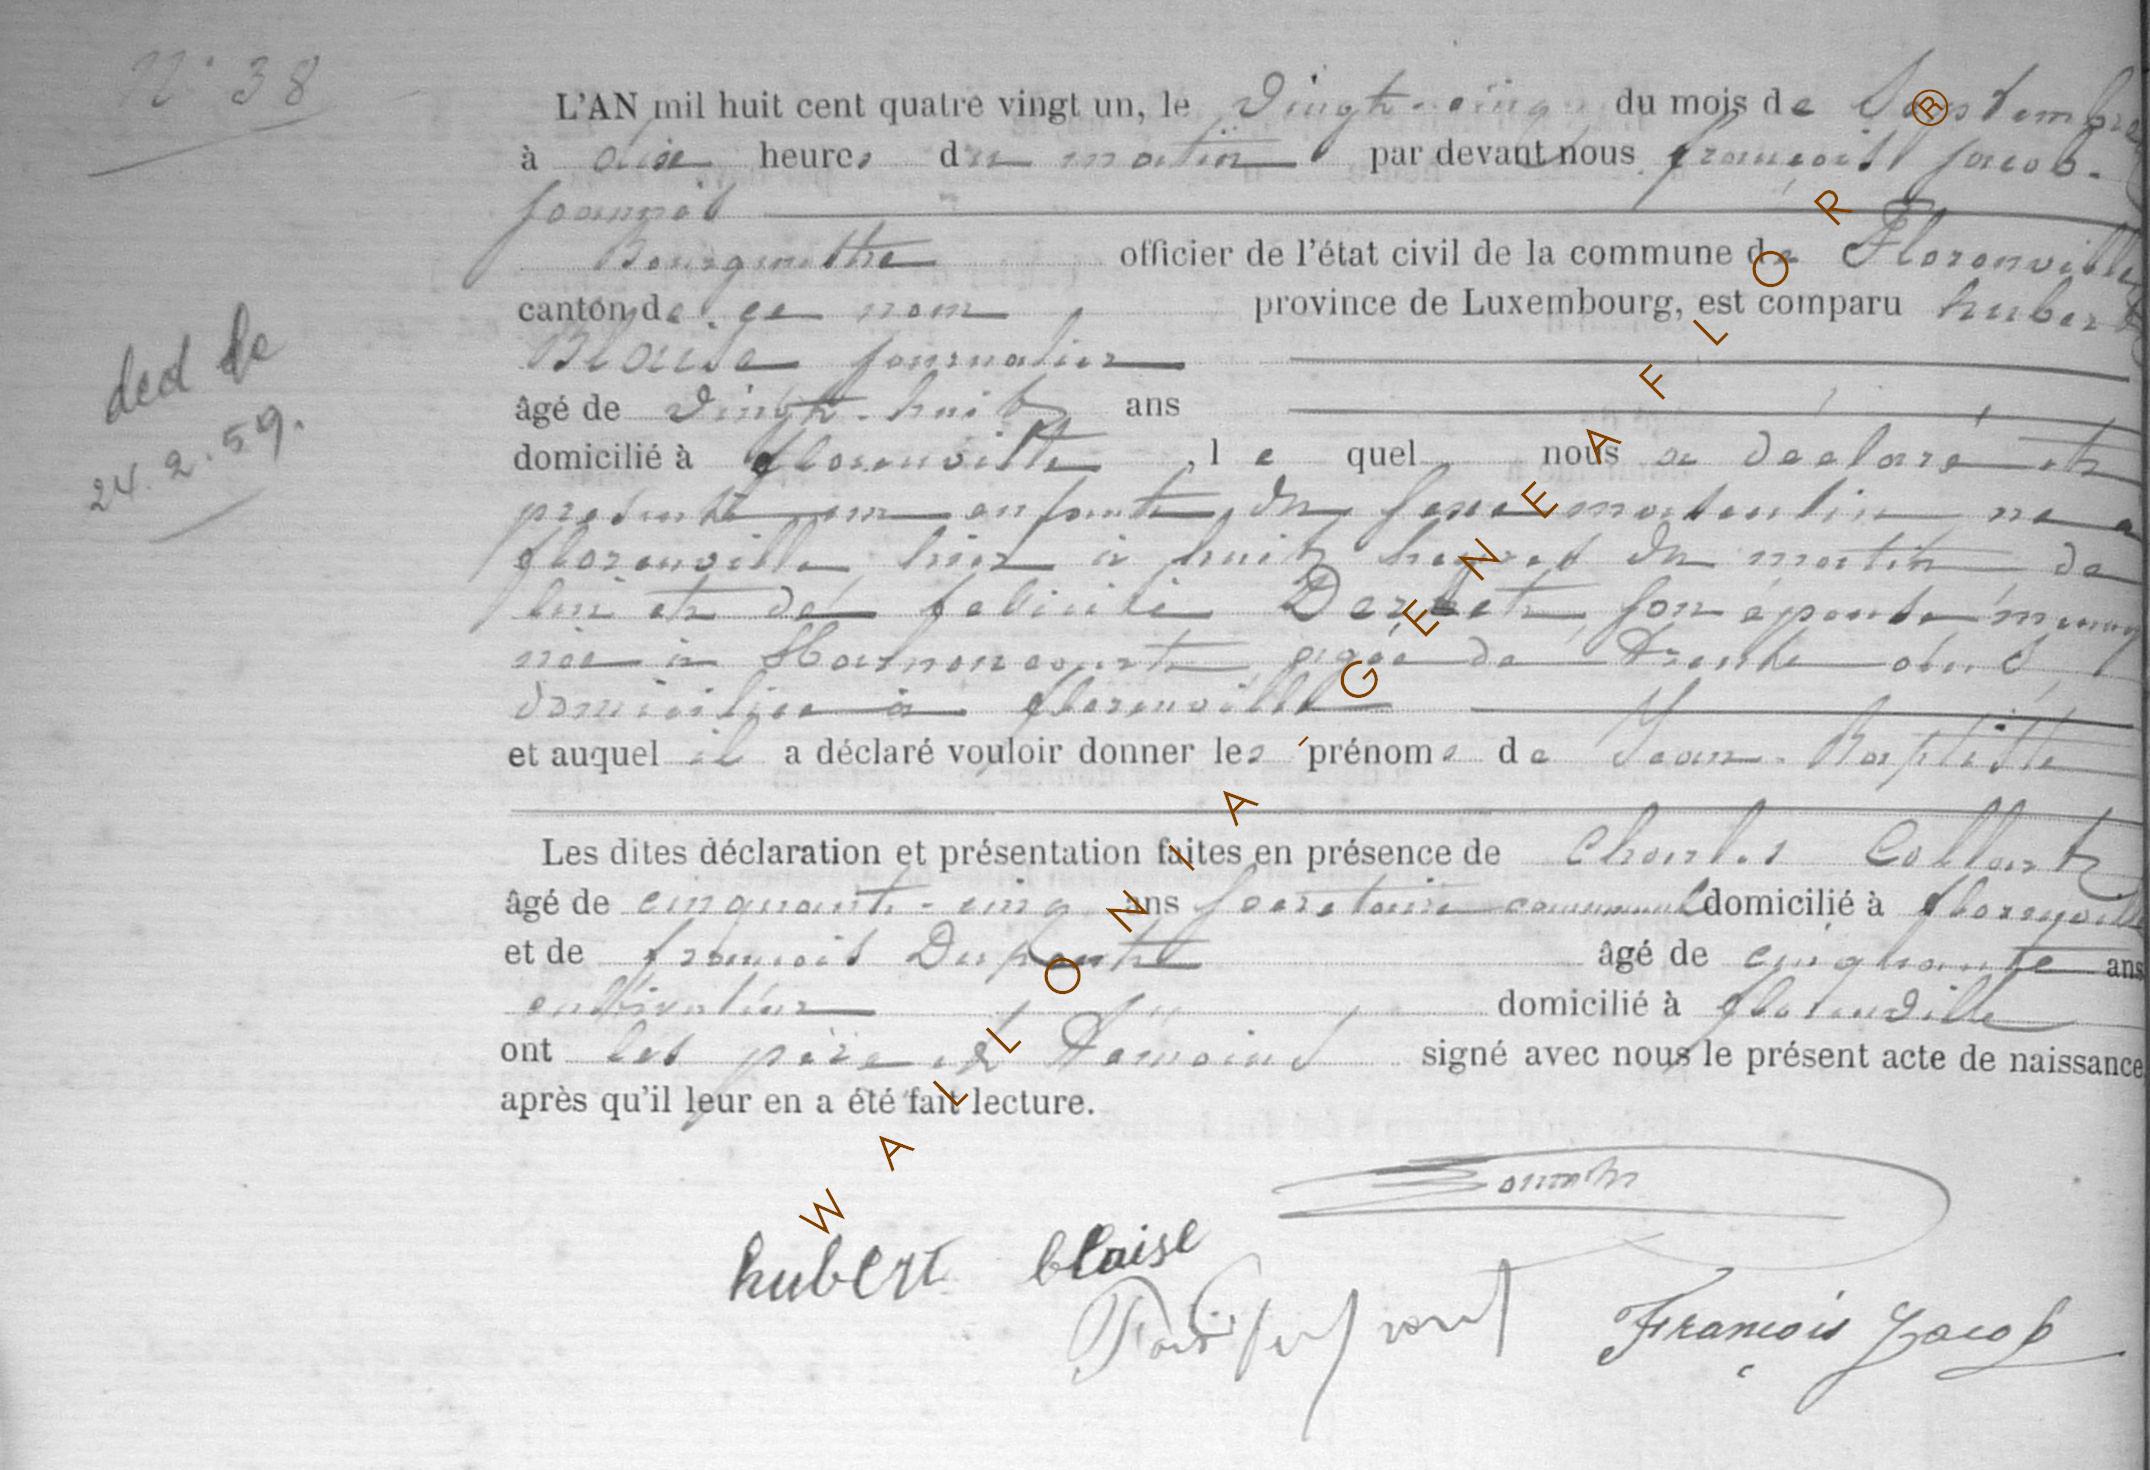 N° 38
L'AN mil huit cent quatre vingt un, le vingt-cinq du mois de Septembre
à dix heures du matin par devant nous françois jacob.
Bourgmestre officier de l'état civil de la commune de Florenville
canton de ce nom province de Luxembourg, est comparu hubert
Blaise journalier
ded le
24.2.59.
âgé de vingt-huit ans
domicilié à florenville, lequel nous a déclaré et
présenté un enfant du sexe masculin né a
florenville hier à huit heures du matin de
lui et de félicité son épouse
née à harnoncourt agée de trente ans
domiciliée à florenville
et auquel il a déclaré vouloir donner les prénoms de Jean-Baptiste
Les dites déclaration et présentation faites en présence de Charles Collart
âgé de cinquante-cinq ans secretaire communal domicilié à florenville
et de francois Dupont âgé de cinquante ans
cultivateur domicilié à florenville
ont les père et témoins signé avec nous le présent acte de naissance
après qu'il leur en a été fait lecture.
hubert blaise
François Jacob
WALLONIA GENEAFLOR ®